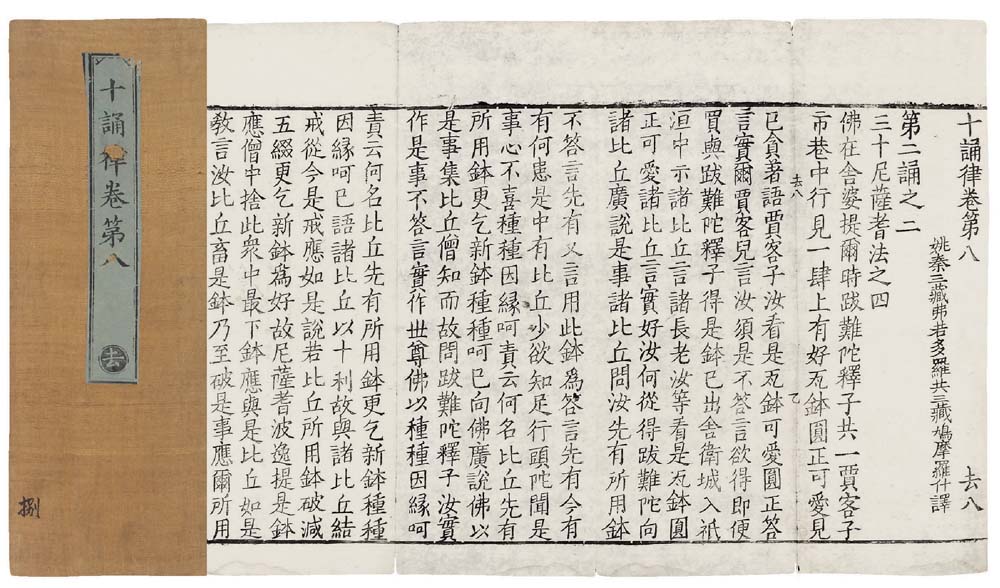 十誦律卷第八 去八
姚秦三藏弗若多羅共三藏鳩摩羅什譯
第二誦之二
三十尼薩耆法之四
佛在舍婆提爾時跋難陀釋子共一賈客子
市巷中行見一肆上有好瓦鉢圓正可愛見
去八 乙
已貪著語賈客子汝看是瓦鉢可愛圓正答
言實爾賈客兒言汝須是不答言欲得即便
買與跋難陀釋子得是鉢已出舍衛城入祇
洹中示諸比丘言諸長老汝等看是瓦鉢圓
正可愛諸比丘言實好汝何從得跋難陀向
諸比丘廣說是事諸比丘問汝先有所用鉢
不答言先有又言用此鉢爲答言先有今有
有何患是中有比丘少欲知足行頭陀聞是
事心不喜種種因緣呵責云何名比丘先有
所用鉢更乞新鉢種種呵已向佛廣說佛以
是事集比丘僧知而故問跋難陀釋子汝實
作是事不答言實作世尊佛以種種因緣呵
責云何名比丘先有所用鉢更乞新鉢種種
因緣呵已語諸比丘以十利故與諸比丘結
戒從今是戒應如是說若比丘所用鉢破減
五綴更乞新鉢爲好故尼薩耆波逸提是鉢
應僧中捨此衆中最下鉢應與是比丘如是
教言汝比丘畜是鉢乃至破是事應爾所用
十誦律卷第八
去
捌